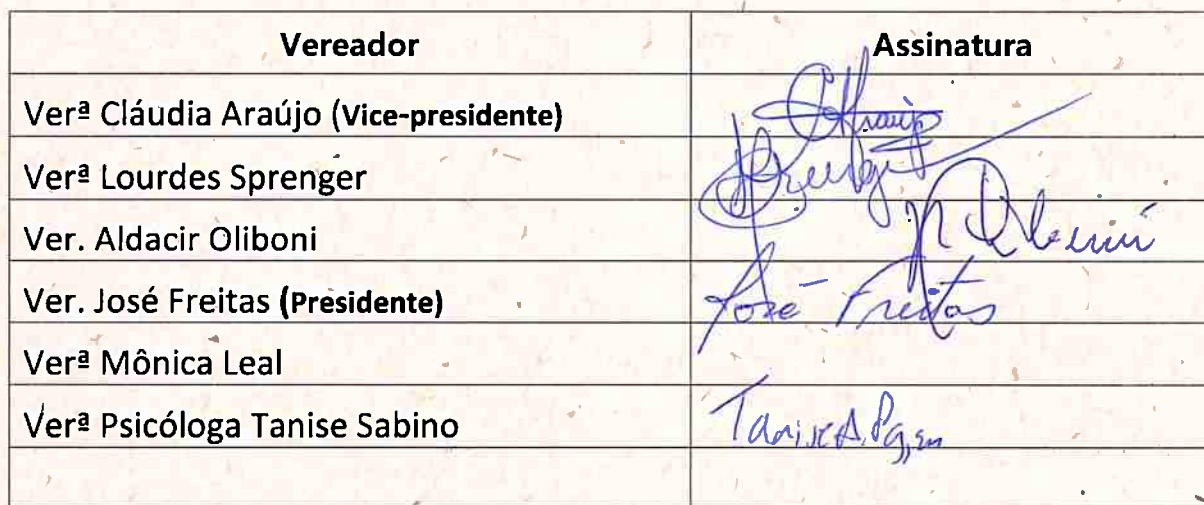 Vereador Assinatura
Verª Cláudia Araújo (Vice-presidente) Araújo
Verª Lourdes Sprenger
Ver. Aldacir Oliboni
Ver. José Freitas (Presidente) José Freitas
Verª Mônica Leal
Verª Psicóloga Tanise Sabino Tanise